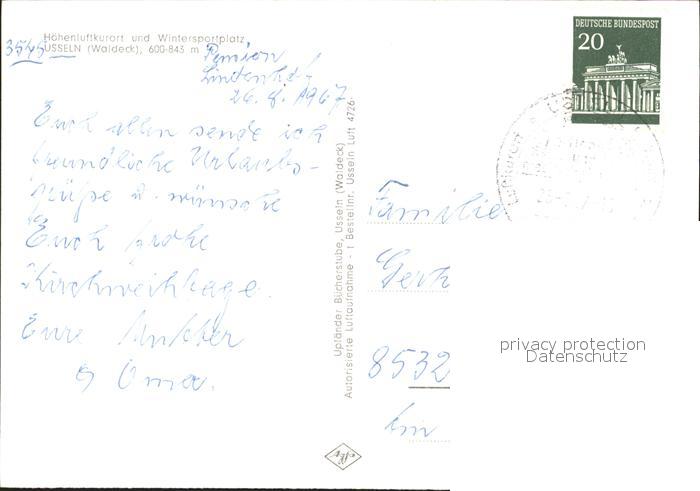 Höhenluftkurort und Wintersportplatz
3545 USSELN (Waldeck), 600-843 m
Pension
Lindenhof
26. 8. 1967
Euch allen sende ich
freundliche Urlaubs-
grüße u. wünsche
Euch frohe
Kirchweihtage.
Eure Mutter
Oma.
Upländer Bücherstube, Usseln (Waldeck)
Autorisierte Luftaufnahme - 1 Bestellnr. Usseln Luft 4726
DEUTSCHE BUNDESPOST
20
Luftkurort
Familie
Gerh
8532
privacy protection
Datenschutz